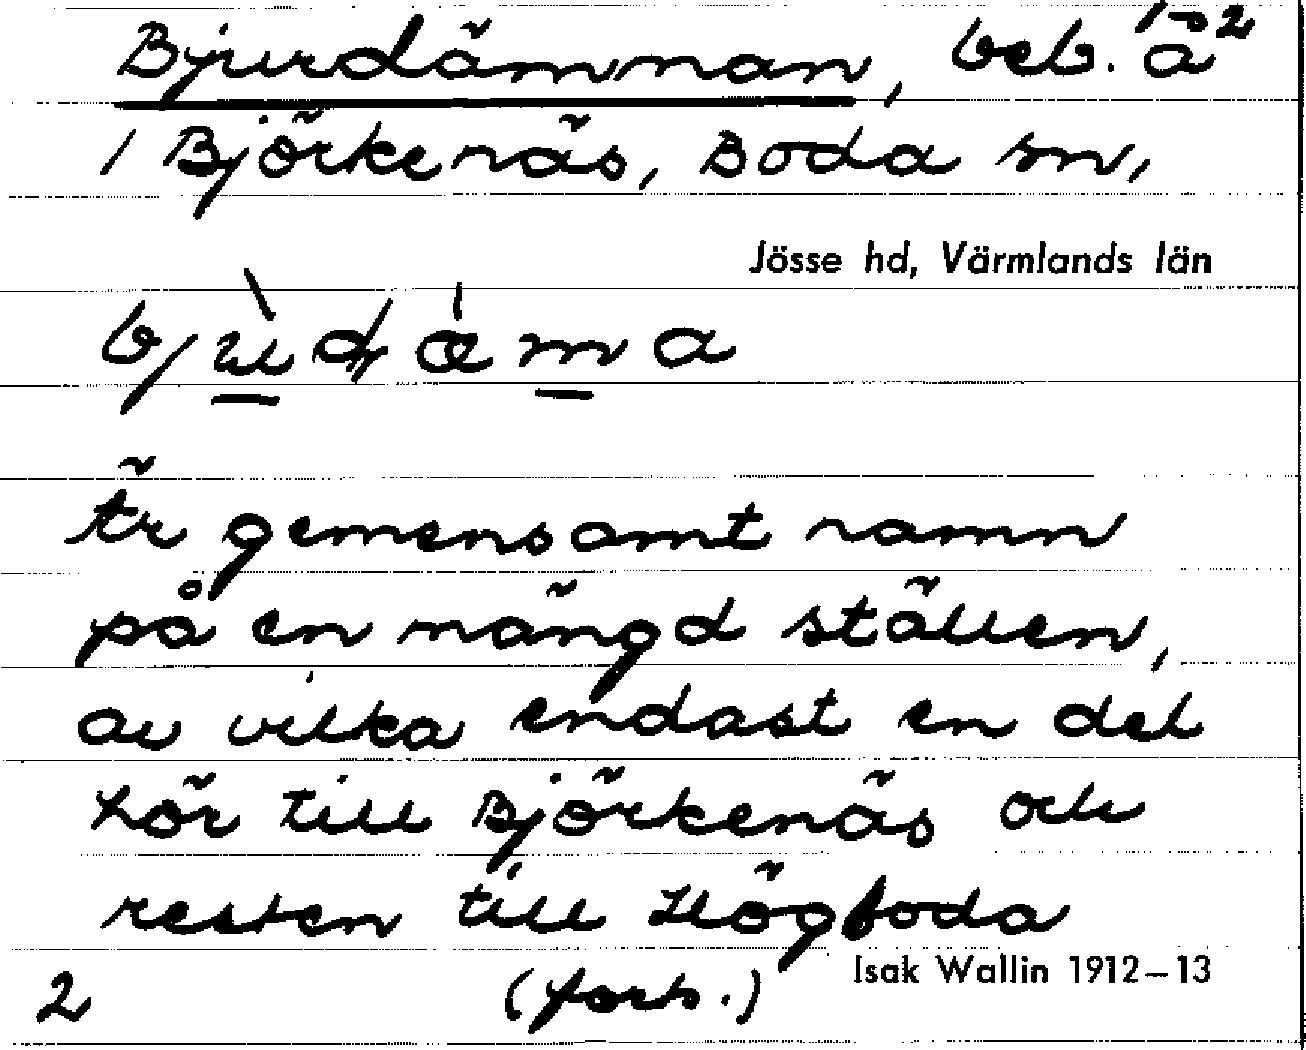 Bjurdämnan, beb. å 1-2
1 Björkenäs, Boda sn,
Jösse hd, Värmlands län
Är gemensamt namn
på en mängd ställen,
av vilka endast en del
hör till Björkenäs och
resten till Högboda
2 (forts.) Isak Wallin 1912–13